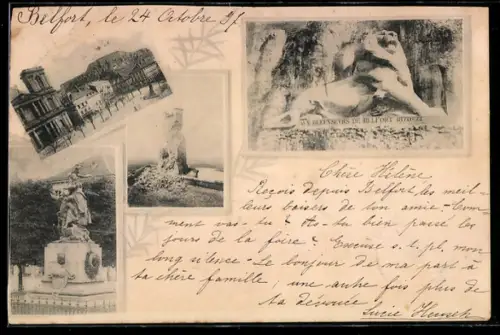 Belfort, le 24 Octobre 97.
AUX DEFENSEURS DE BELFORT 1870-1871
Chère Hélène
Reçois depuis Belfort les meil-
leurs baisers de ton amie. Com-
ment vas-tu? As-tu bien passé les
jours de la foire? Excuse s.t.pl. mon
long silence. Le bonjour de ma part à
ta chère famille, une autre fois plus de
ta dévouée
Lucie